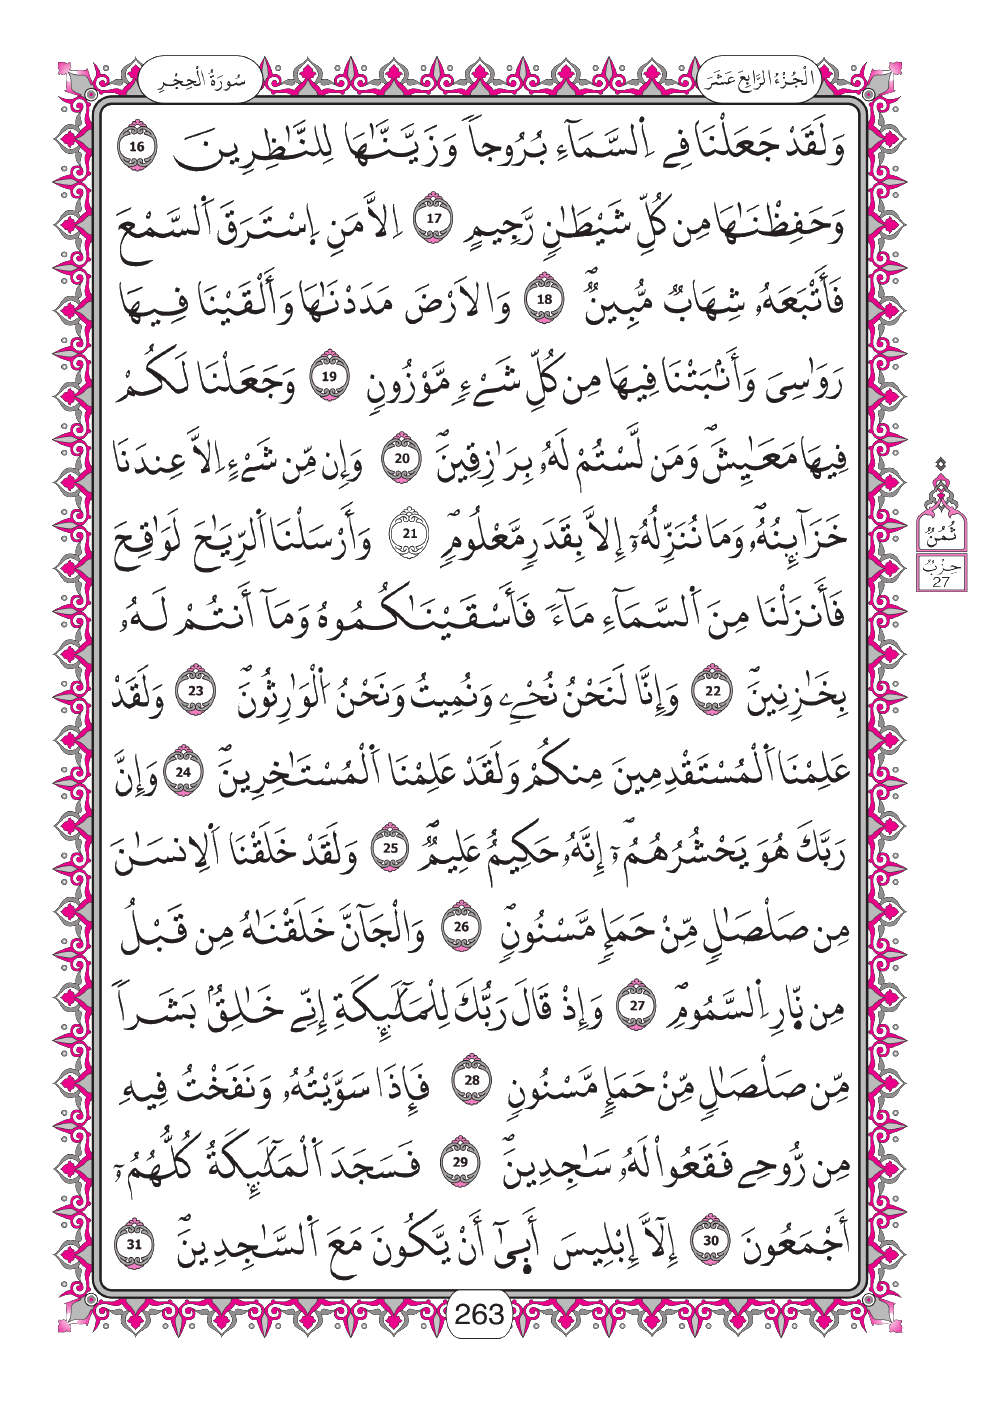 سُورَةُ الْحِجْرِ
الْجُزْءُ الرَّابِعَ عَشَرَ
وَلَقَدْ جَعَلْنَا فِے اِ۬لسَّمَآءِ بُرُوجاٗ وَزَيَّنَّٰهَا لِلنَّٰظِرِينَ 16
وَحَفِظْنَٰهَا مِن كُلِّ شَيْطَٰنٖ رَّجِيمٍ 17 اِلَّا مَنِ اِ۪سْتَرَقَ اَ۬لسَّمْعَ
فَأَتْبَعَهُۥ شِهَابٞ مُّبِينٞۖ 18 وَالَارْضَ مَدَدْنَٰهَا وَأَلْقَيْنَا فِيهَا
رَوَٰسِيَ وَأَنۢبَتْنَا فِيهَا مِن كُلِّ شَےْءٖ مَّوْزُونٖ 19 وَجَعَلْنَا لَكُمْ
فِيهَا مَعَٰيِشَۖ وَمَن لَّسْتُمْ لَهُۥ بِرَٰزِقِينَۖ 20 وَإِن مِّن شَےْءٍ اِلَّا عِندَنَا
خَزَآئِنُهُۥۖ وَمَا نُنَزِّلُهُۥٓ إِلَّا بِقَدَرٖ مَّعْلُومٖۖ 21 وَأَرْسَلْنَا اَ۬لرِّيَٰحَ لَوَٰقِحَ
فَأَنزَلْنَا مِنَ اَ۬لسَّمَآءِ مَآءٗ فَأَسْقَيْنَٰكُمُوهُ وَمَآ أَنتُمْ لَهُۥ
بِخَٰزِنِينَۖ 22 وَإِنَّا لَنَحْنُ نُحْيِۦ وَنُمِيتُ وَنَحْنُ اُ۬لْوَٰرِثُونَۖ 23 وَلَقَدْ
عَلِمْنَا اَ۬لْمُسْتَقْدِمِينَ مِنكُمْ وَلَقَدْ عَلِمْنَا اَ۬لْمُسْتَٰخِرِينَۖ 24 وَإِنَّ
رَبَّكَ هُوَ يَحْشُرُهُمُۥٓۖ إِنَّهُۥ حَكِيمٌ عَلِيمٞۖ 25 وَلَقَدْ خَلَقْنَا اَ۬لِانسَٰنَ
مِن صَلْصَٰلٖ مِّنْ حَمَإٖ مَّسْنُونٖۖ 26 وَالْجَآنَّ خَلَقْنَٰهُ مِن قَبْلُ
مِن نّ۪ارِ اِ۬لسَّمُومِۖ 27 وَإِذْ قَالَ رَبُّكَ لِلْمَلَٰٓئِكَةِ إِنِّے خَٰلِقُۢ بَشَراٗ
مِّن صَلْصَٰلٖ مِّنْ حَمَإٖ مَّسْنُونٖ 28 فَإِذَا سَوَّيْتُهُۥ وَنَفَخْتُ فِيهِ
مِن رُّوحِے فَقَعُواْ لَهُۥ سَٰجِدِينَۖ 29 فَسَجَدَ اَ۬لْمَلَٰٓئِكَةُ كُلُّهُمُۥٓ
أَجْمَعُونَ 30 إِلَّآ إِبْلِيسَ أَب۪ىٰٓ أَنْ يَّكُونَ مَعَ اَ۬لسَّٰجِدِينَۖ 31
ثُمُنُ
حِزْبُ
27
263